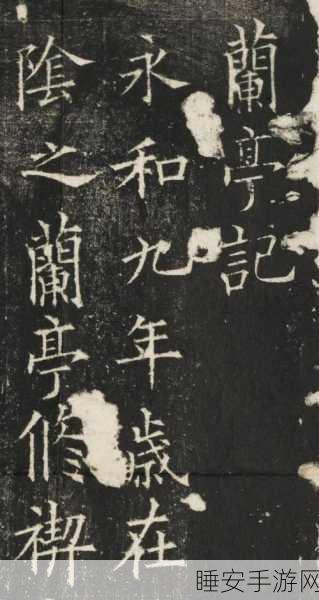 蘭亭記
永和九年歲在
陰之蘭亭修禊
睡安手游网